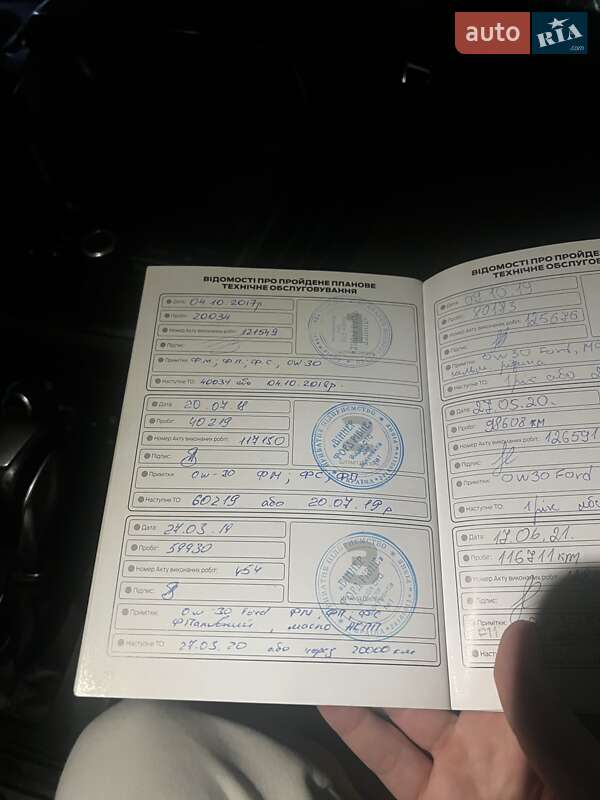 auto RIA .com
ВІДОМОСТІ ПРО ПРОЙДЕНЕ ПЛАНОВЕ
ТЕХНІЧНЕ ОБСЛУГОВУВАННЯ
Дата: 04.10.2017р
Пробіг: 20034
Номер Акту виконаних робіт: 121549
Підпис:
Примітки: ФМ, ФП, ФС, 0W30
Наступне ТО: 40034 або 04.10.2018р.
Дата: 20.07.18
Пробіг: 40219
Номер Акту виконаних робіт: 117150
Підпис:
Примітки: 0w-30 ФМ, ФС, ФП
Наступне ТО: 60219 або 20.07.19р
Дата: 27.03.19
Пробіг: 59930
Номер Акту виконаних робіт: 454
Підпис:
Примітки: 0w-30 Ford ФМ, ФП, ФС
Фпаливний, масло АКПП
Наступне ТО: 27.03.20 або через 20000 км
ВІДОМОСТІ ПРО ПРОЙДЕНЕ
ТЕХНІЧНЕ ОБСЛУГОВУ
Дата: 09.10.19
Пробіг: 80183
Номер Акту виконаних робіт: 125676
Підпис:
Примітки: 0W30 Ford,
Наступне ТО: 1 рік або
Дата: 27.05.20.
Пробіг: 98608 км
Номер Акту виконаних робіт: 126591
Підпис:
Примітки: 0W30 Ford
Наступне ТО: 1 рік або
Дата: 17.06.21.
Пробіг: 116711 km
Номер Акту виконаних робіт:
Підпис:
Примітки:
Наступ